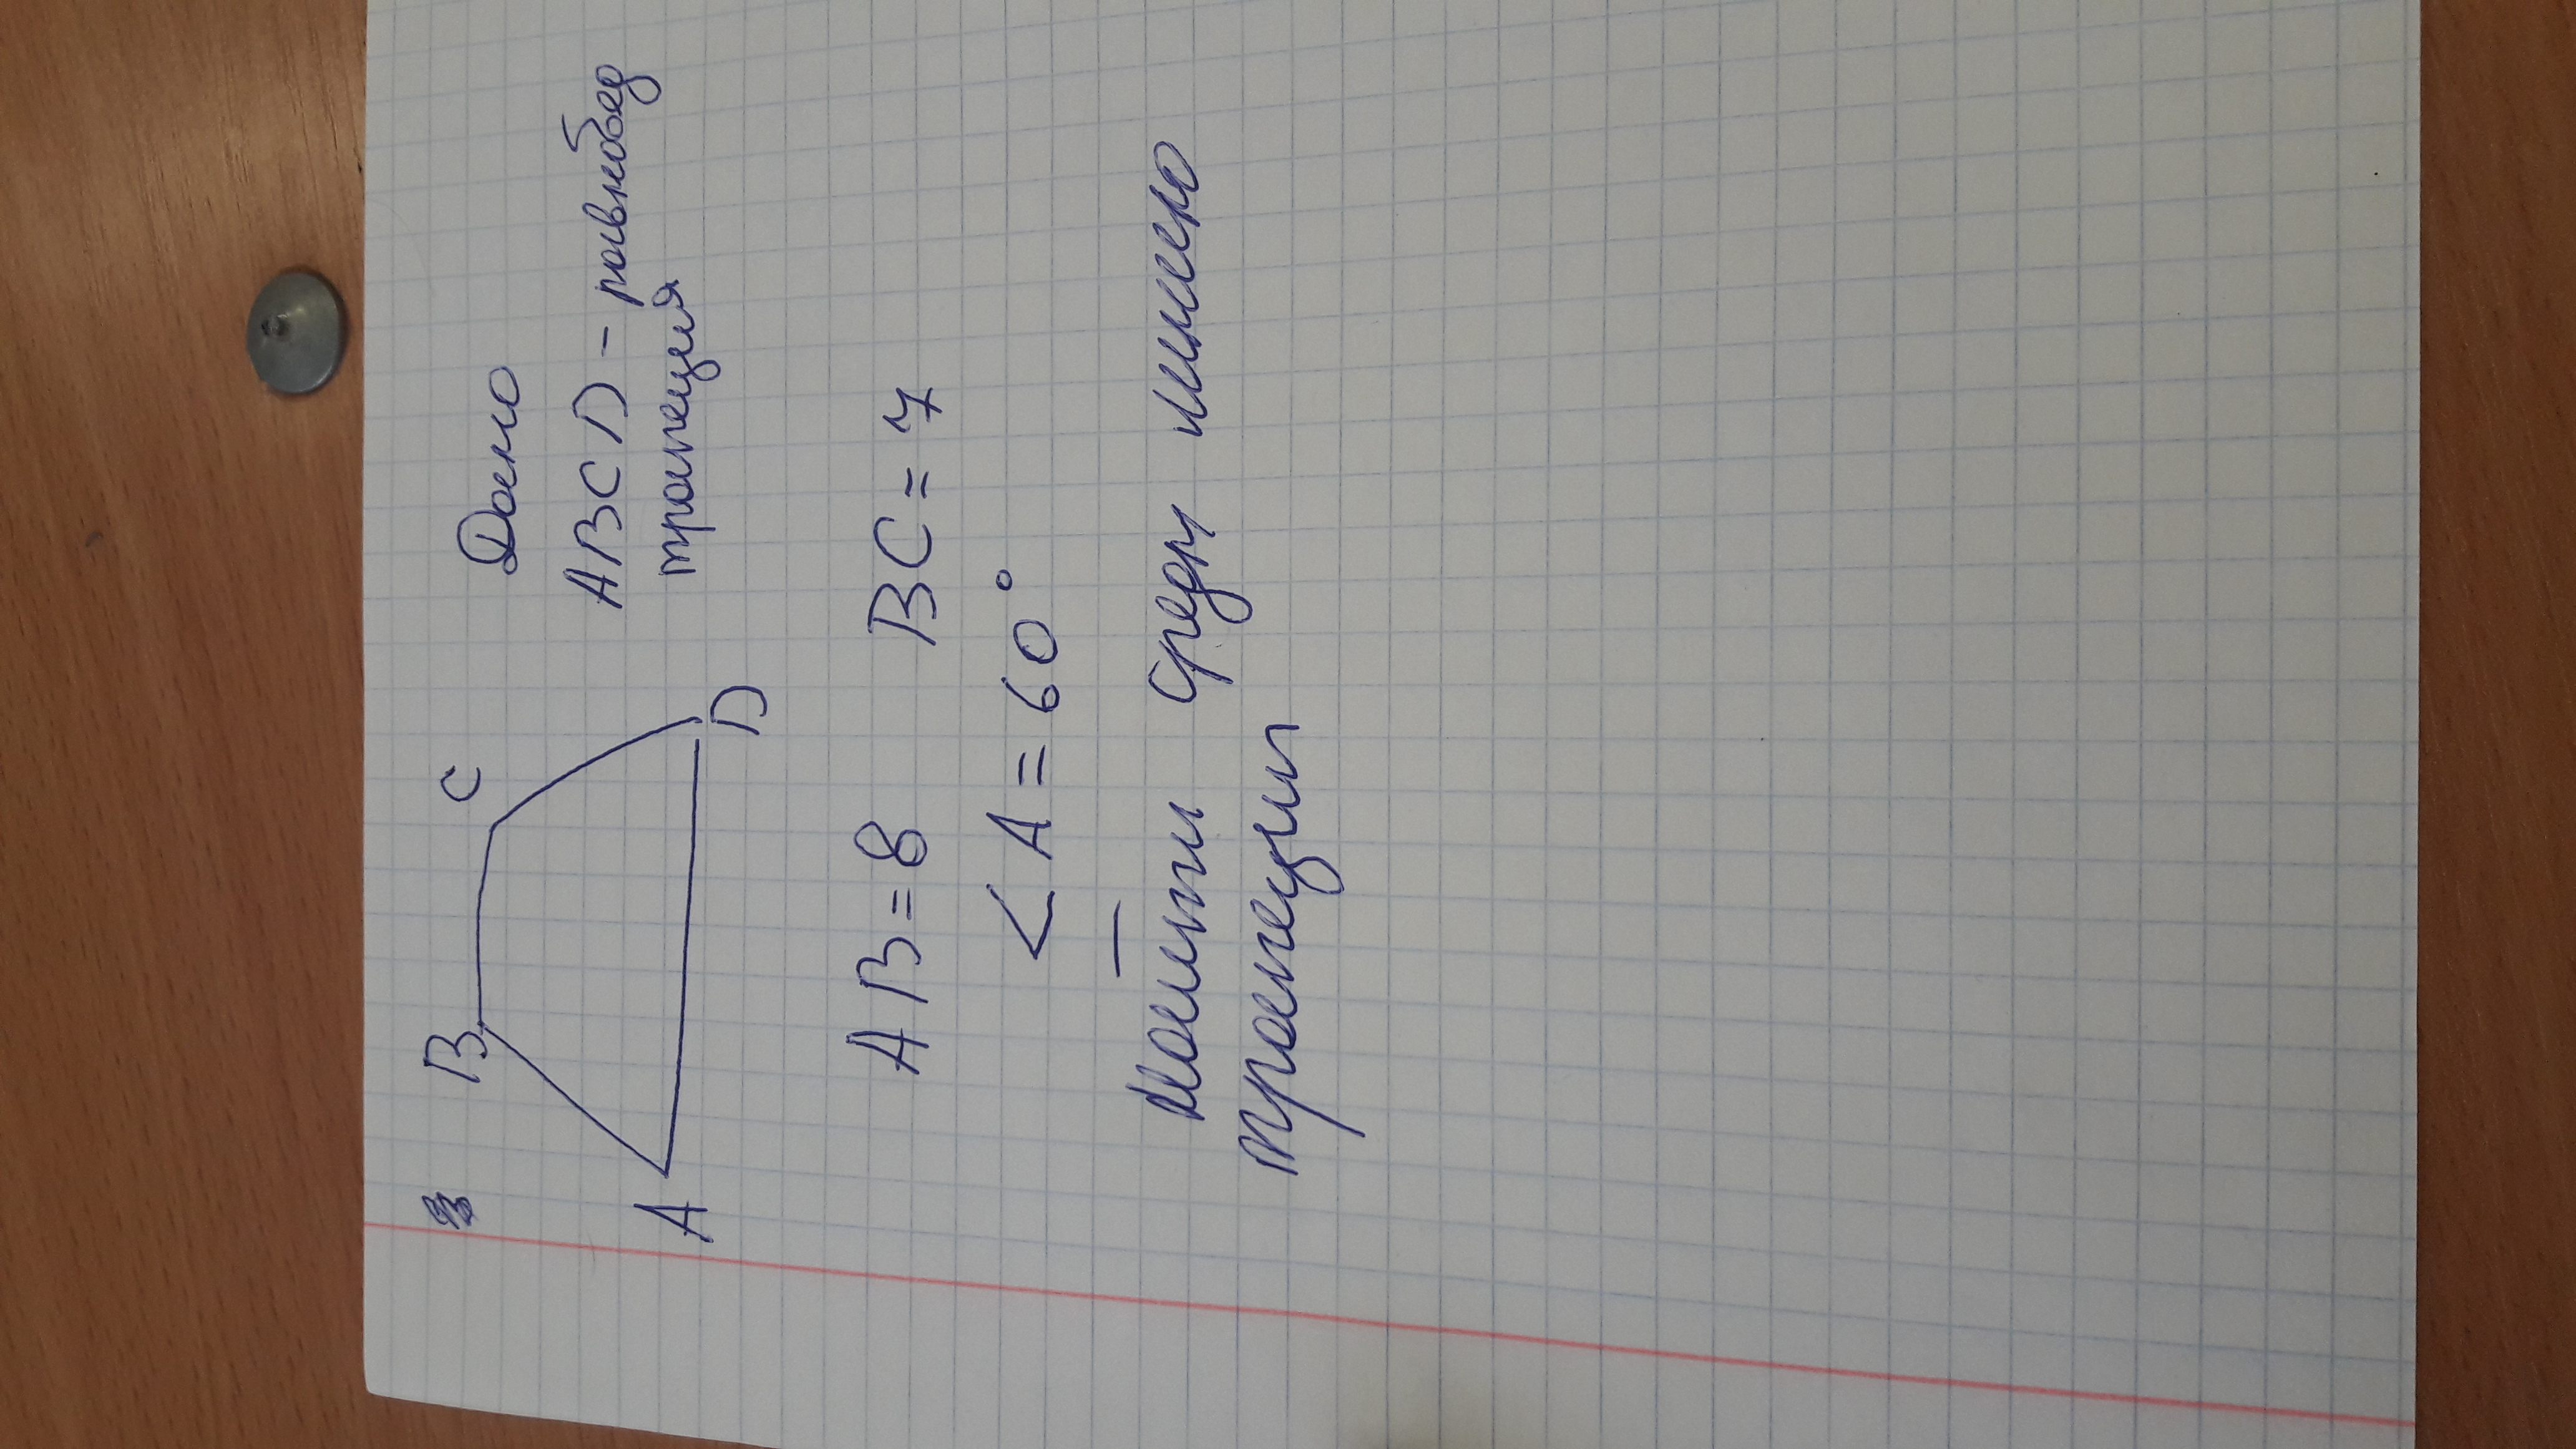 B C
A D
Дано
ABCD - равнобед
трапеция
AB = 8 BC = 7
< A = 60°
Найти средн линию
трапеции